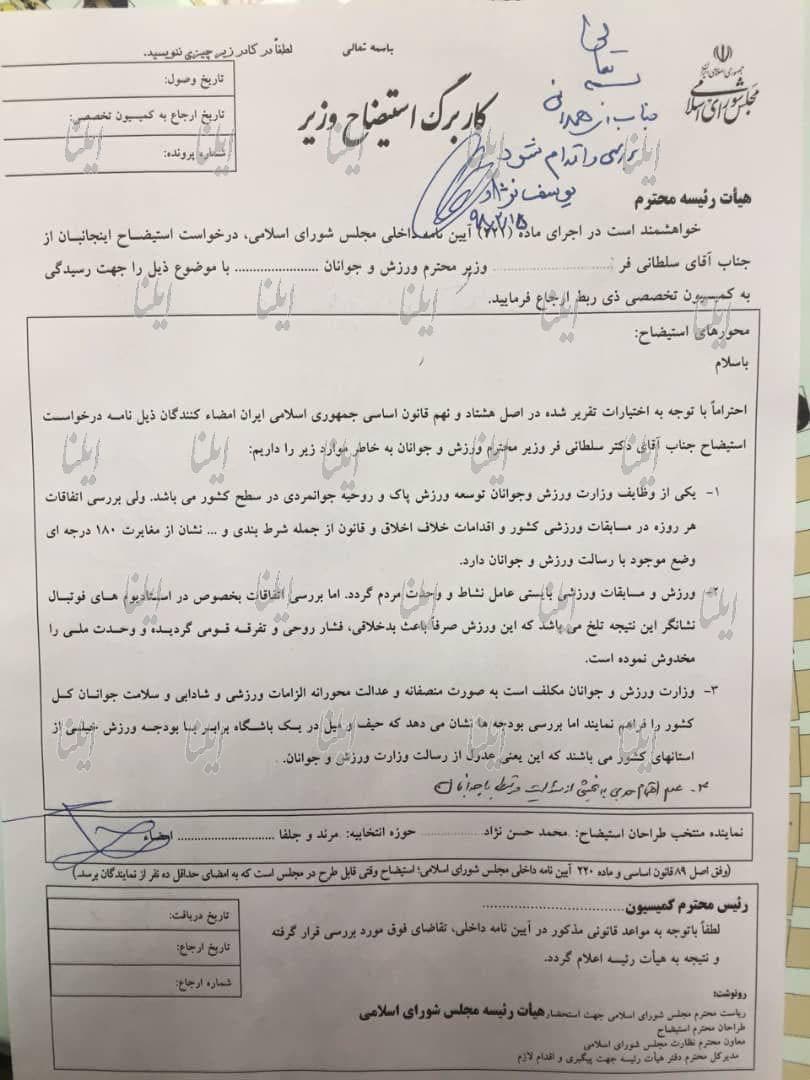 باسمه تعالی
لطفاً در کادر زیر چیزی ننویسید.
جمهوری اسلامی ایران
مجلس شورای اسلامی
تاریخ وصول:
تاریخ ارجاع به کمیسیون تخصصی:
شماره پرونده:
کاربرگ استیضاح وزیر
بسمه تعالی
جناب
بررسی و اقدام شود
یوسف نژاد
۹۸/۲/۱۵
هیأت رئیسه محترم
خواهشمند است در اجرای ماده (۲۲۱) آیین نامه داخلی مجلس شورای اسلامی، درخواست استیضاح اینجانبان از
جناب آقای سلطانی فر .................... وزیر محترم ورزش و جوانان .................... با موضوع ذیل را جهت رسیدگی
به کمیسیون تخصصی ذی ربط ارجاع فرمایید.
محورهای استیضاح:
باسلام
احتراماً با توجه به اختیارات تقریر شده در اصل هشتاد و نهم قانون اساسی جمهوری اسلامی ایران امضاء کنندگان ذیل نامه درخواست
استیضاح جناب آقای دکتر سلطانی فر وزیر محترم ورزش و جوانان به خاطر موارد زیر را داریم:
۱- یکی از وظایف وزارت ورزش وجوانان توسعه ورزش پاک و روحیه جوانمردی در سطح کشور می باشد. ولی بررسی اتفاقات
هر روزه در مسابقات ورزشی کشور و اقدامات خلاف اخلاق و قانون از جمله شرط بندی و ... نشان از مغایرت ۱۸۰ درجه ای
وضع موجود با رسالت ورزش و جوانان دارد.
۲- ورزش و مسابقات ورزشی بایستی عامل نشاط و وحدت مردم گردد. اما بررسی اتفاقات بخصوص در استادیوم های فوتبال
نشانگر این نتیجه تلخ می باشد که این ورزش صرفاً باعث بدخلاقی، فشار روحی و تفرقه قومی گردیده و وحدت ملی را
مخدوش نموده است.
۳- وزارت ورزش و جوانان مکلف است به صورت منصفانه و عدالت محورانه الزامات ورزشی و شادابی و سلامت جوانان کل
کشور را فراهم نمایند اما بررسی بودجه ها نشان می دهد که حیف و میل در یک باشگاه برابر با بودجه ورزش خیلی از
استانهای کشور می باشند که این یعنی عدول از رسالت وزارت ورزش و جوانان.
۴- عدم اهتمام جدی به بخشی از رسالت مرتبط با جوانان
نماینده منتخب طراحان استیضاح: محمد حسن نژاد .................... حوزه انتخابیه: مرند و جلفا .................... امضاء
(وفق اصل ۸۹ قانون اساسی و ماده ۲۲۰ آیین نامه داخلی مجلس شورای اسلامی؛ استیضاح وقتی قابل طرح در مجلس است که به امضای حداقل ده نفر از نمایندگان برسد.)
رئیس محترم کمیسیون..............................
لطفاً باتوجه به مواعد قانونی مذکور در آیین نامه داخلی، تقاضای فوق مورد بررسی قرار گرفته
و نتیجه به هیأت رئیسه اعلام گردد.
تاریخ دریافت:
تاریخ ارجاع:
شماره ارجاع:
هیأت رئیسه مجلس شورای اسلامی
رونوشت:
ریاست محترم مجلس شورای اسلامی جهت استحضار
طراحان محترم استیضاح
معاون محترم نظارت مجلس شورای اسلامی
مدیرکل محترم دفتر هیأت رئیسه جهت پیگیری و اقدام لازم
ایلنا